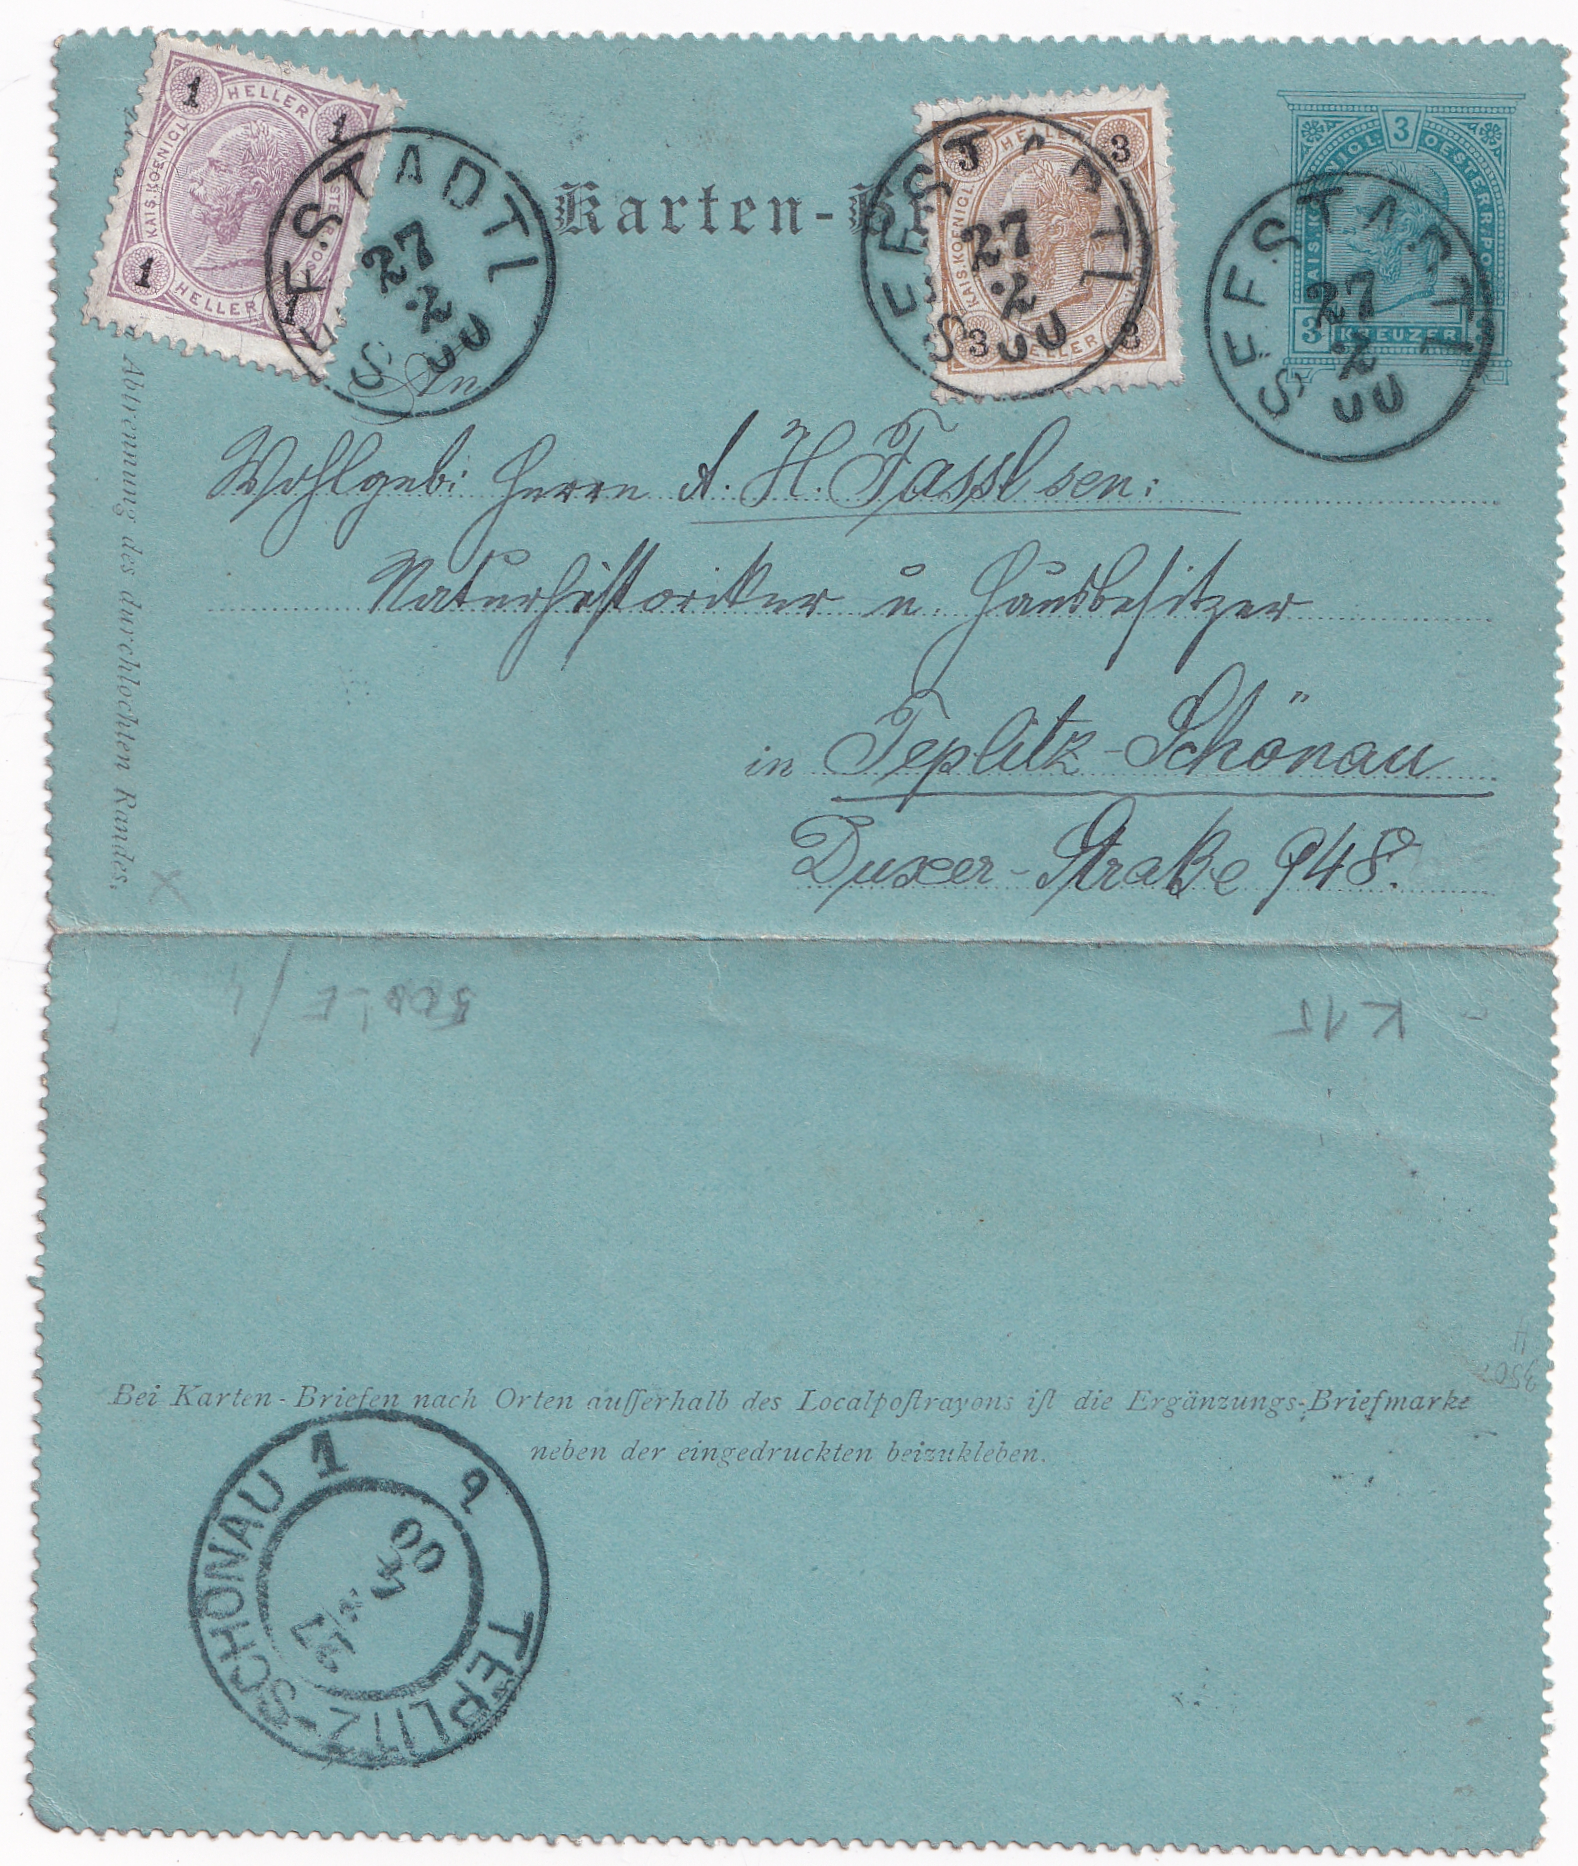 1 HELLER 1
KAIS. KOENIGL.
1 HELLER 1
Karten-
3 HELLER 3
KAIS. KOENIGL.
3 HELLER 3
3
OESTERR. PO
3 KREUZER 3
SEESTADTL
27
2
00
SEESTADTL
27
2
00
SEESTADTL
27
2
00
An
Wohlgeb: Herrn A. H. Fassl sen:
Naturhistoriker u. Hausbesitzer
in Teplitz-Schönau
Duxer-Straße 948.
Abtrennung des durchlochten Randes.
K 15
Bei Karten-Briefen nach Orten auſſerhalb des Localpoſtrayons iſt die Ergänzungs-Briefmarke
neben der eingedruckten beizukleben.
TEPLITZ-SCHÖNAU 1
27
00